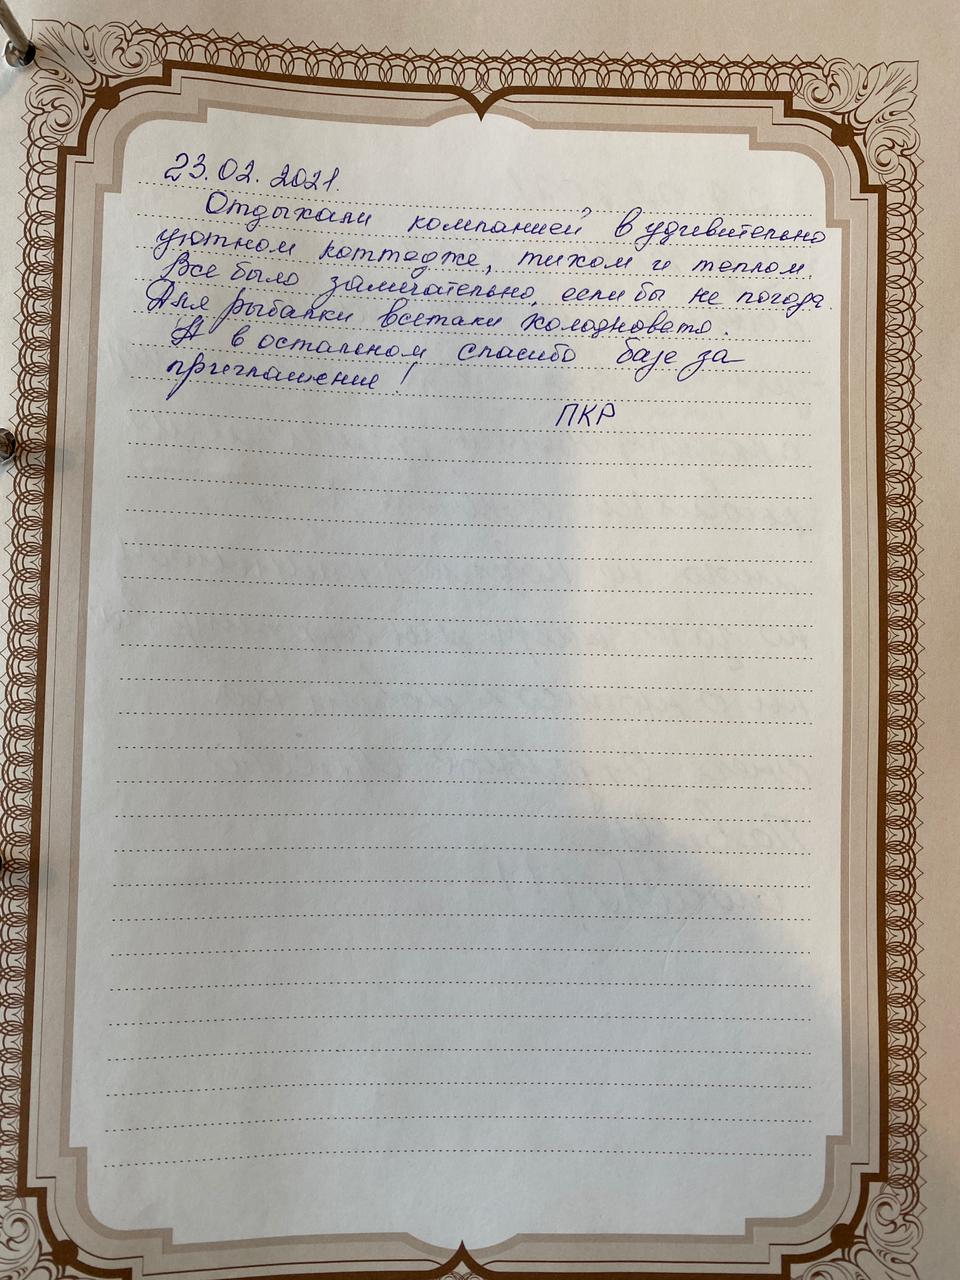 23.02.2021.
Отдыхали компанией в удивительно
уютном коттедже, тихом и теплом.
Все было замечательно, если бы не погода.
Для рыбалки всетаки холодновато.
А в остальном спасибо базе за
приглашение!
ПКР